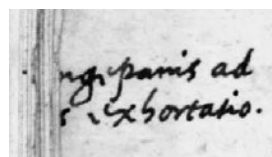 panis ad
exhortatio.